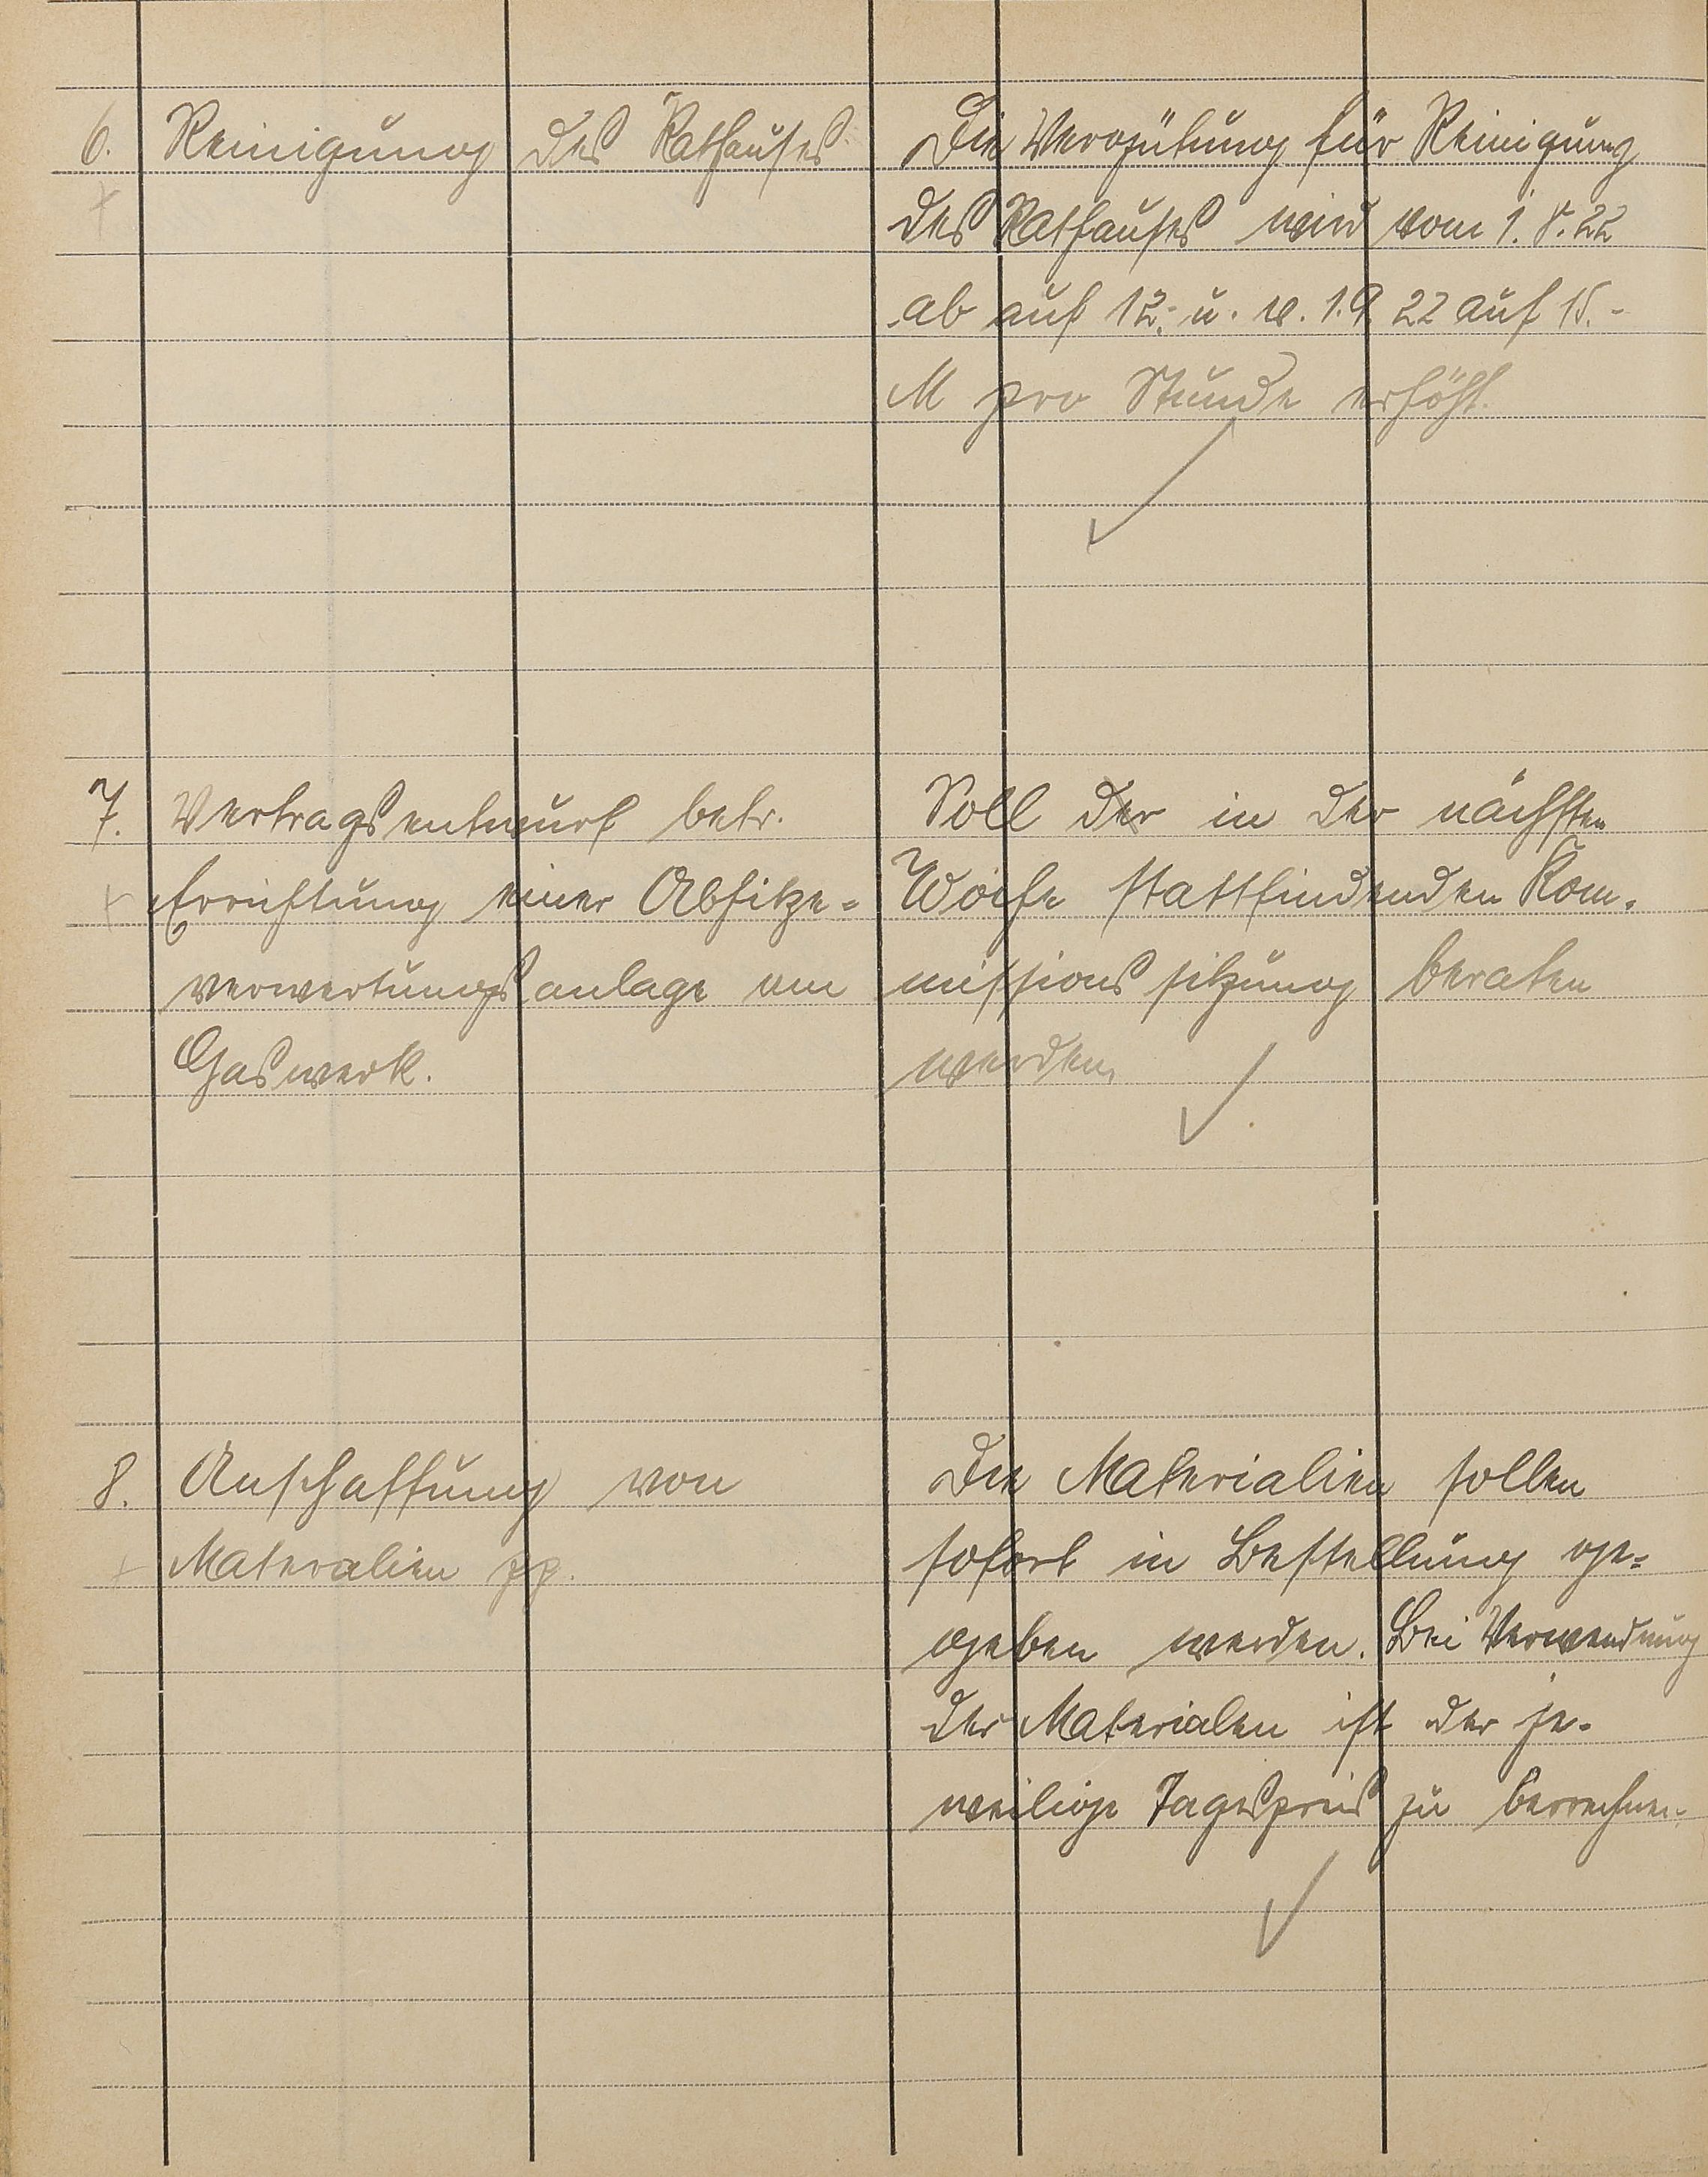 6. Reinigung des Rathauses
Die Vergütung für Reinigung
des Rathauses wird vom 1. 8. 22
ab auf 12,- u. v. 1.9. 22 auf 15.-
M pro Stunde erhöht.
7. Vertragsentwurf betr.
Errichtung einer Abhitze-
verwertungsanlage am
Gaswerk.
Soll der in der nächsten
Woche stattfindenden Kom-
missionssitzung beraten
werden.
8. Anschaffung von
Materalien pp.
Die Materialien sollen
sofort in Bestellung ge-
geben werden. Bei Verwendung
der Materialen ist der je-
weilige Tagespreis zu berechnen.